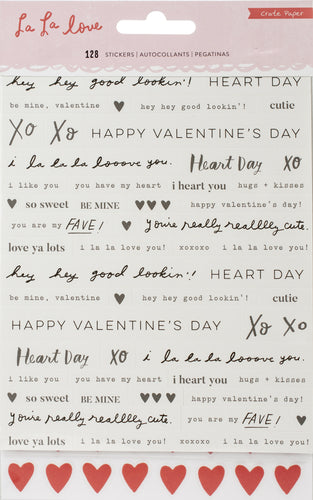 La La love
Crate Paper
128 STICKERS | AUTOCOLLANTS | PEGATINAS
hey hey good lookin'! HEART DAY
be mine, valentine hey hey good lookin'! cutie
XO XO HAPPY VALENTINE'S DAY
i la la la looove you. Heart Day XO
i like you you have my heart i heart you hugs + kisses
so sweet BE MINE happy valentine's day!
you are my FAVE! you're really realllly cute.
love ya lots i la la love you! xoxoxo i la la love you!
hey hey good lookin'! HEART DAY
be mine, valentine hey hey good lookin'! cutie
HAPPY VALENTINE'S DAY XO XO
Heart Day XO i la la la looove you.
i like you you have my heart i heart you hugs + kisses
so sweet BE MINE happy valentine's day!
you're really realllly cute. you are my FAVE!
love ya lots i la la love you! xoxoxo i la la love you!